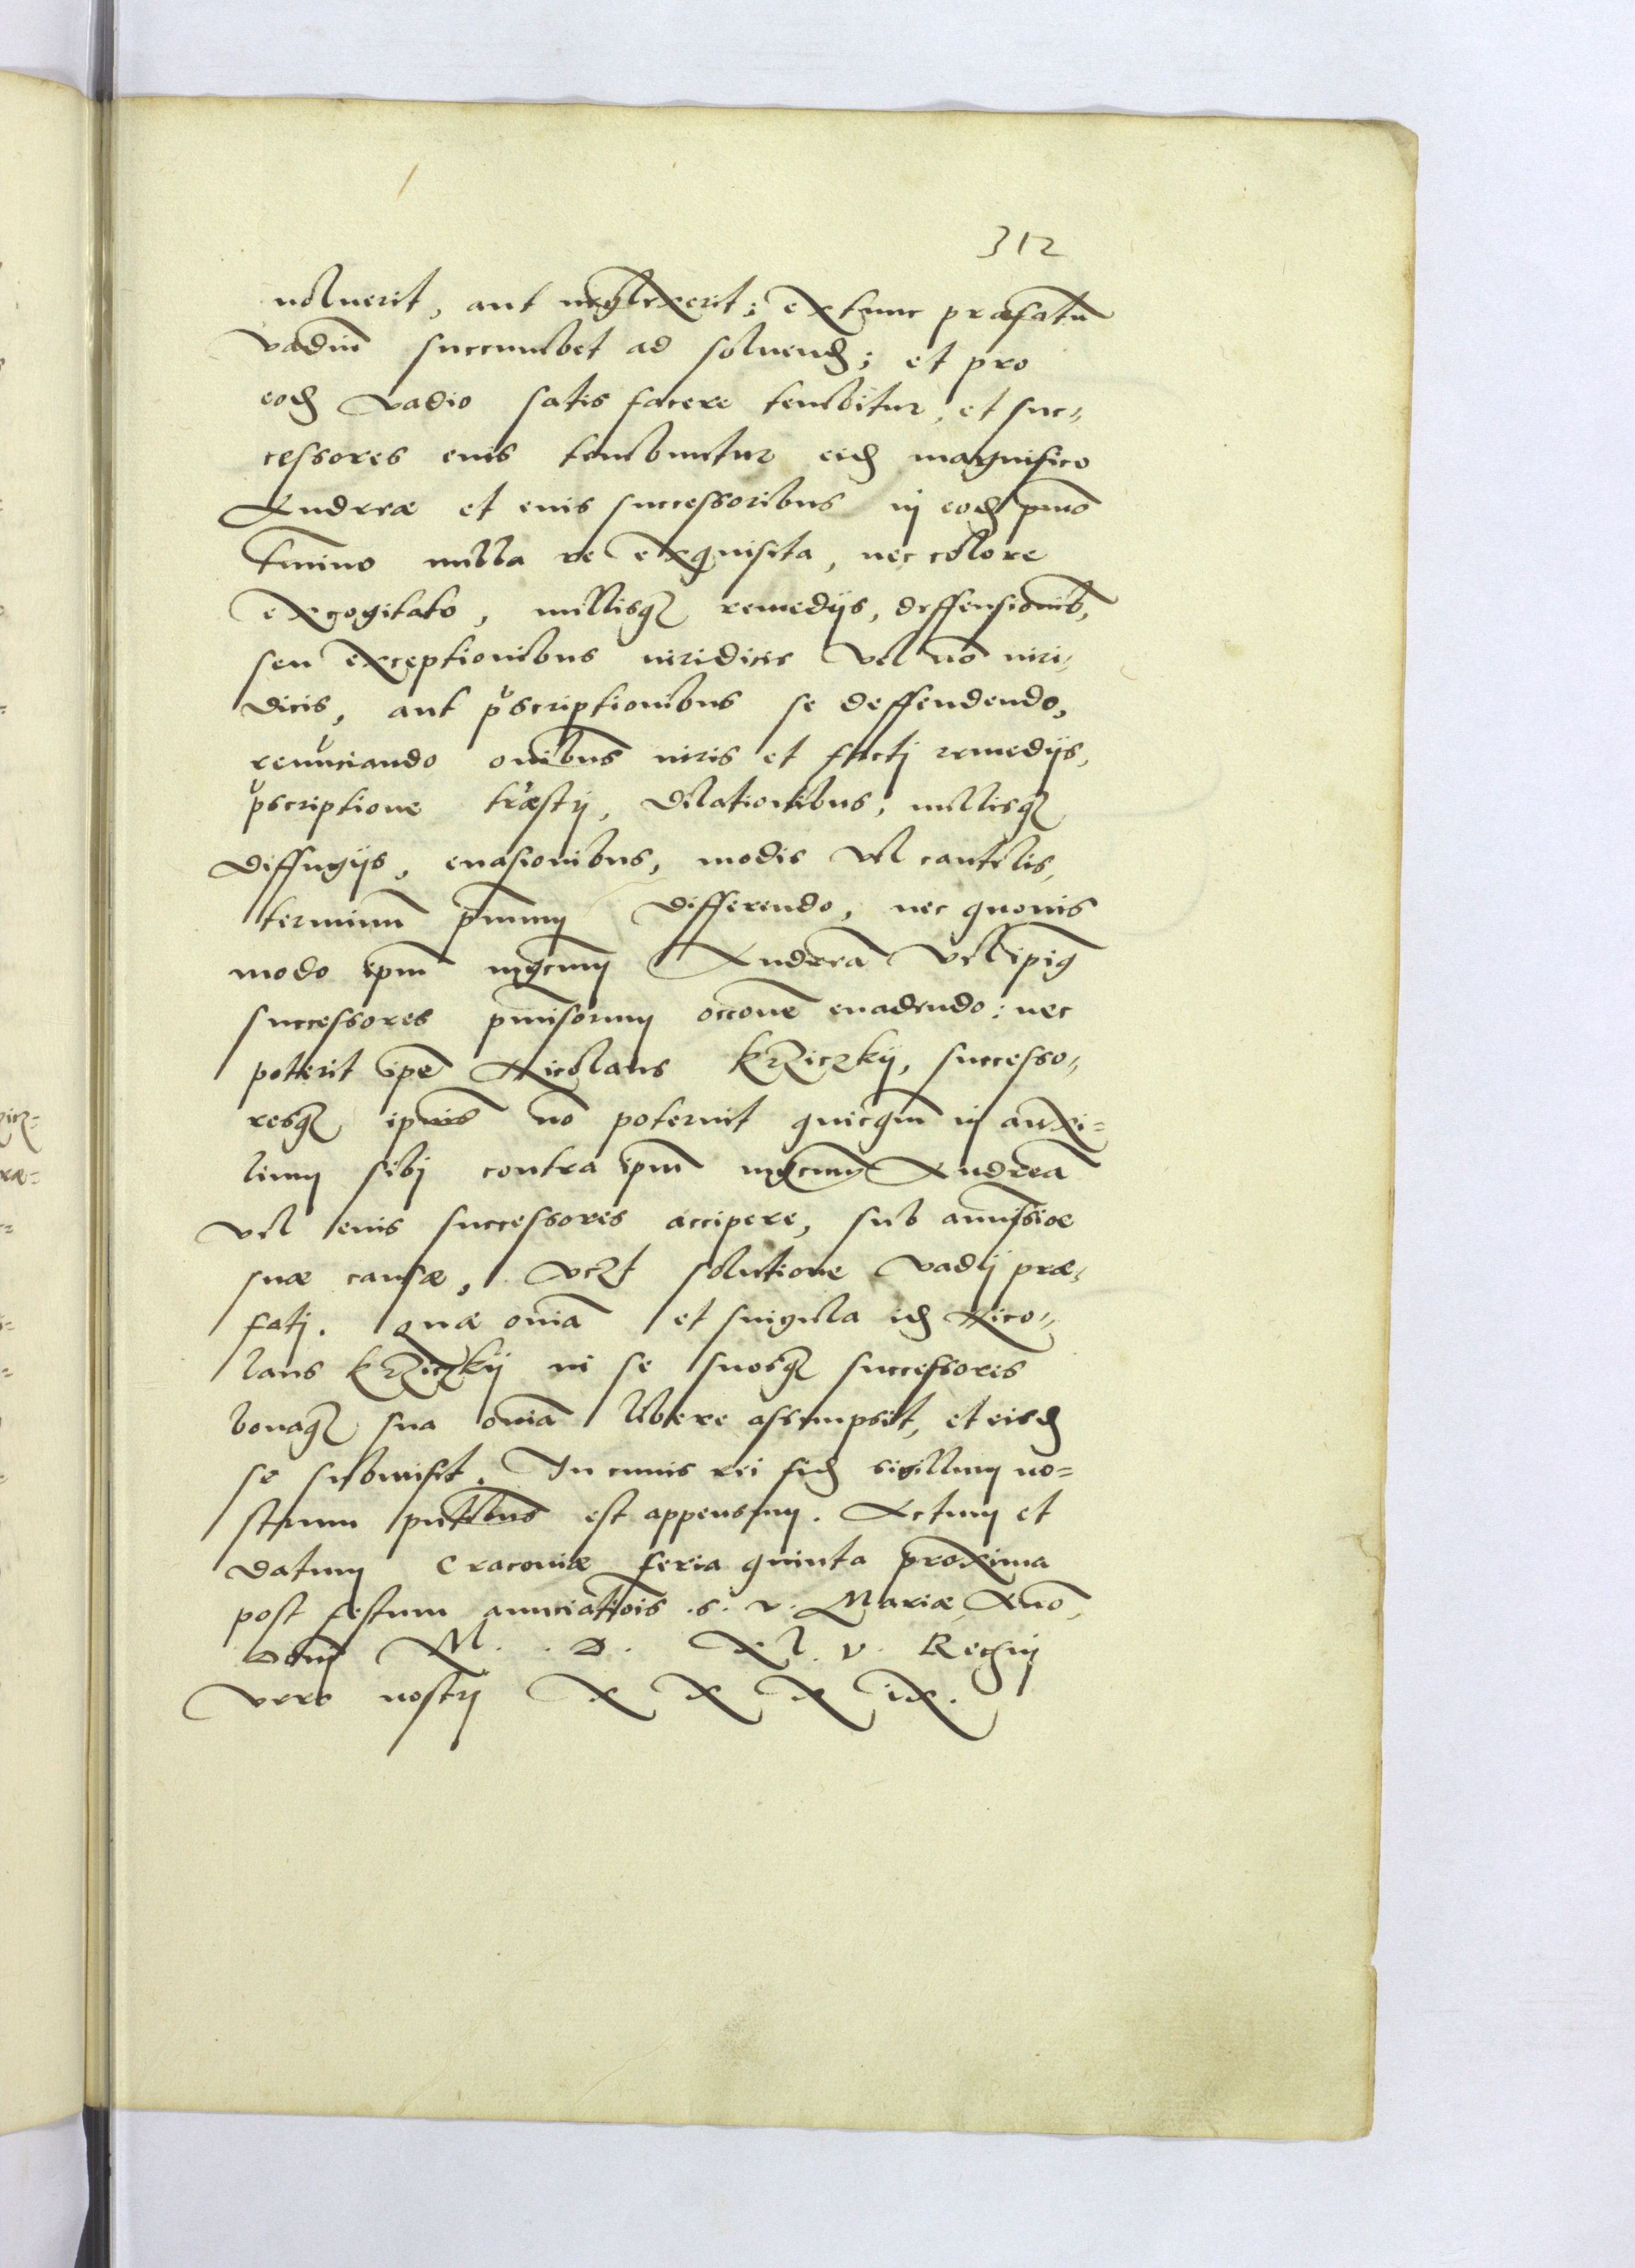 312
noluerit, aut neglexerit; extunc præfatũ
vadiũ succumbet ad soluend; et pro
eod vadio satis facere tenebitur, et suc,,
cessores eius tenebuntur eid magnifico
Andreæ et eius successoribus in eod pm̃o
tmino nulla re exquisita, nec colore
excogitato, nullisq remedijs, deffensionib,
seu exceptionibus iuridicis vel nõ iuri,,
dicis, aut pscriptionibus se deffendendo,
renunciando om̃ibus iuris et facti remedijs,
pscriptione træstri, dilationibus, nullisq
diffugijs, euasionibus, modis vel cautelis,
terminũ pm̃um differendo, nec quouis
modo ipm̃ mgcum Andreã vel ipiq
successores pm̃isorum occõne euadendo: nec
poterit ipẽ Nicolaus Krziczkij, successo,,
resq ipius nõ poterint quicqm̃ in auxi=
lium sibi contra ipm̃ mgcum Andreã
vel eius successores accipere, sub amissiõe
suæ causæ, vczt solutione vadij præ,,
fati. quæ om̃ia et singula id Nico,,
laus Krziczkij in se suosq successores
bonaq sua om̃ia libere assumpsit, et eisd
se submisit. In cuius rei fid sigillum no=
strum pñtibus est appensum. Actum et
datum Cracouiæ feria quinta proxima
post festum anuciatiõis .s. v. Mariæ Anõ,
Dom̃j M. . D. XL. v. Regni
vero nostri X X X IX.